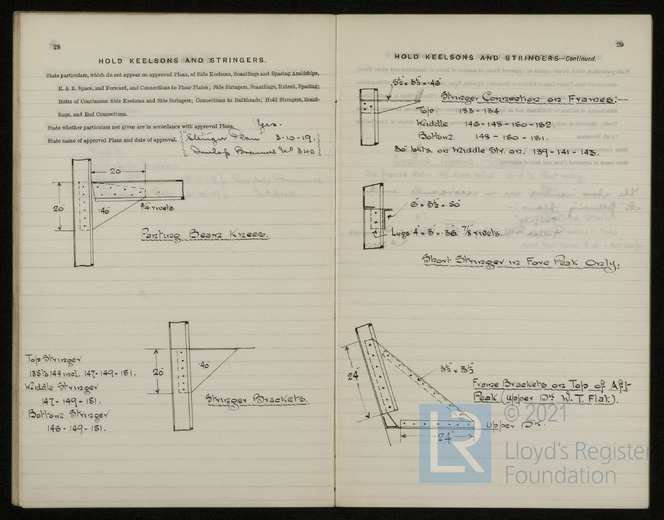 28
HOLD KEELSONS AND STRINGERS.
State particulars, which do not appear on approved Plans, of Side Keelsons, Scantlings and Spacing Amidships,
E. & B. Space, and Forward, and Connections to Floor Plates; Side Stringers, Scantlings, Extend, Spacing;
Butts of Continuous Side Keelsons and Side Stringers; Connections to Bulkheads; Hold Stringers, Scant-
lings, and End Connections.
State whether particulars not given are in accordance with approved Plans. Yes.
State name of approved Plans and date of approval. Stringer Plan 3-10-19.
Dunlop Bremner No 340
20"
20"
40
3/4 rivets
Panting Beam Knees.
Top Stringer
138 to 144 incl. 147-149-151.
Middle Stringer
147-149-151.
Bottom Stringer
146-149-151.
20"
40
Stringer Brackets.
29
HOLD KEELSONS AND STRINGERS—Continued.
Stringer Connection on Frames:-
Top 133-134.
Middle 145-148-150-152.
Bottom 148-150-151.
on Middle Str. on. 139-141-143.
6" x 3½ x .50"
Lugs 4 x 3 x .36 7/8 rivets.
Short Stringer in Fore Peak Only.
24"
3½ x 3½
Frame Brackets on Top of Aft
Peak (Upper Dk W.T. Flat).
Upper Dk.
24"
© 2021
LR
Lloyd's Register
Foundation